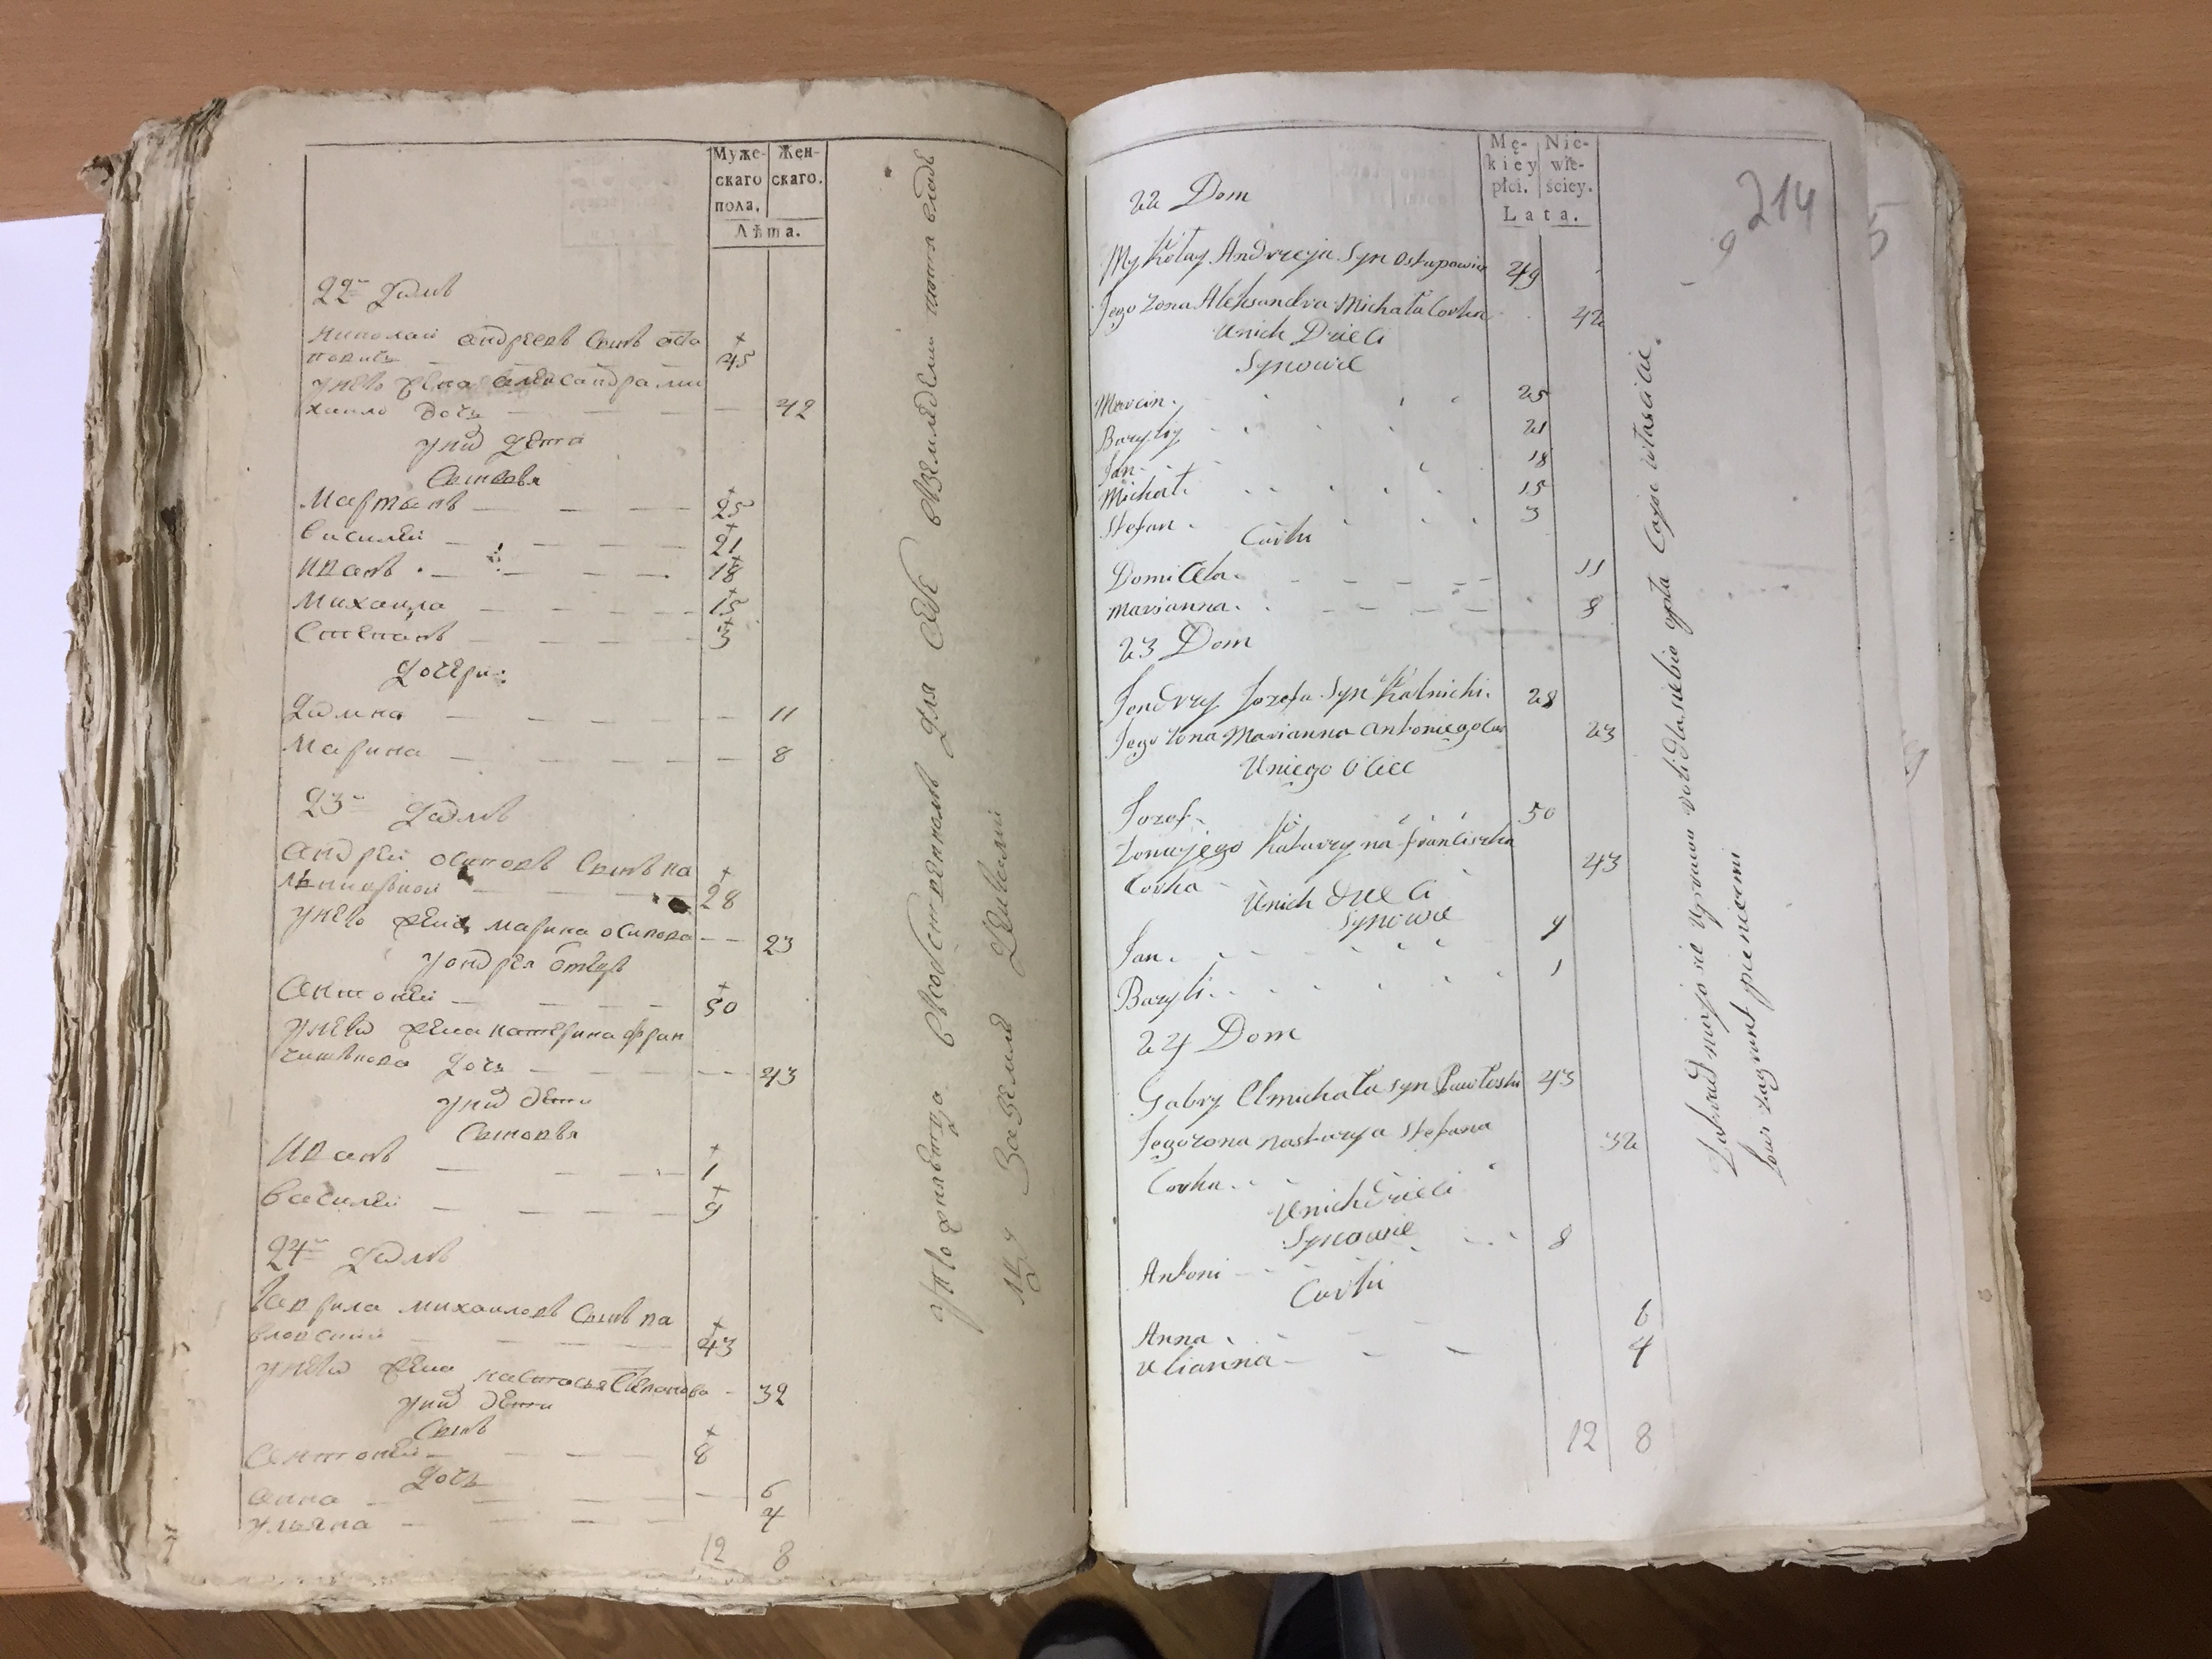 Муже-
скаго
пола.
Жен-
скаго.
Лѣта.
22й Домъ
Николай Андреевъ Сынъ Оста
повичь 45
У него жена Александра Ми
хаило дочь 42
У них дети
Сыновья
Мартынъ 25
Василий 21
Иванъ 18
Михайла 15
Степанъ 3
Дочери:
Домна 11
Марина 8
23й Домъ
Андрей Осиповъ Сынъ Ка
28
У него жена Марина Осипова 23
У Андрея Отецъ
Антоний 50
У него жена Катерина Фран
дочь 43
У них дети
Сыновья
Иванъ 1
Василий 9
24й Домъ
Гаврила Михаиловъ Сынъ Па
вловский 43
У него жена Настасья Степанова 32
У них дети
Сынъ
Антоний 8
Дочь
Анна 6
Ульяна 4
12 8
для себе
Mę-
kiey
płci.
Nie-
wie-
ściey.
Lata.
214
5
9
22 Dom
Mykołay Andrzeja Syn Ostapowicz 49
Jego żona Aleksandra Michała Corka 42
Unich Dzieci
Synowie
Marcin 25
Bazyly 21
Jan 18
Michał 15
Stefan 3
Corki
Domicela 11
Marianna 8
23 Dom
Jendrzy Jozefa Syn Kalnicki 28
Jego żona Marianna Antoniego Cor 23
Uniego Ociec
Jozef 50
Zona jego Katarzyna Franciszka 43
Corka
Unich Dzieci
Synowie
Jan 9
Bazyli 1
24 Dom
Gabryel Michała syn Pawłoski 43
Jego zona Nastazya Stefana 32
Corka
Unich Dzieci
Synowie
Antoni 8
Corki
Anna 6
Ulianna 4
12 8